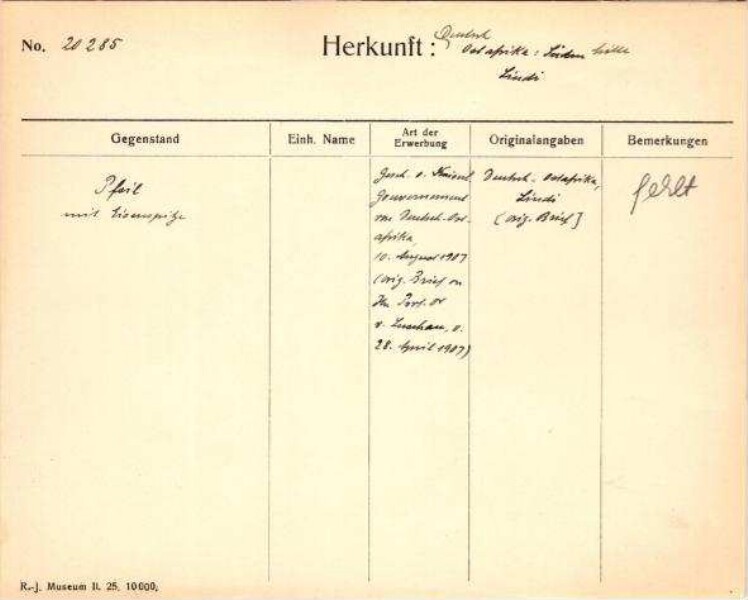 No. 20 285
Herkunft: Deutsch
Ostafrika: Süden
Lindi
Gegenstand
Einh. Name
Art der
Erwerbung
Originalangaben
Bemerkungen
Pfeil
mit Eisenspitze
Gesch. v. Kaiserl.
Gouvernement
von Deutsch-Ost-
afrika,
10. August 1907
(orig. Brief an
Hn. Prof. Dr
v. Luschan, v.
28. April 1907)
Deutsch-Ostafrika,
Lindi
(orig. Brief]
fehlt
R.-J. Museum II. 25. 10000.